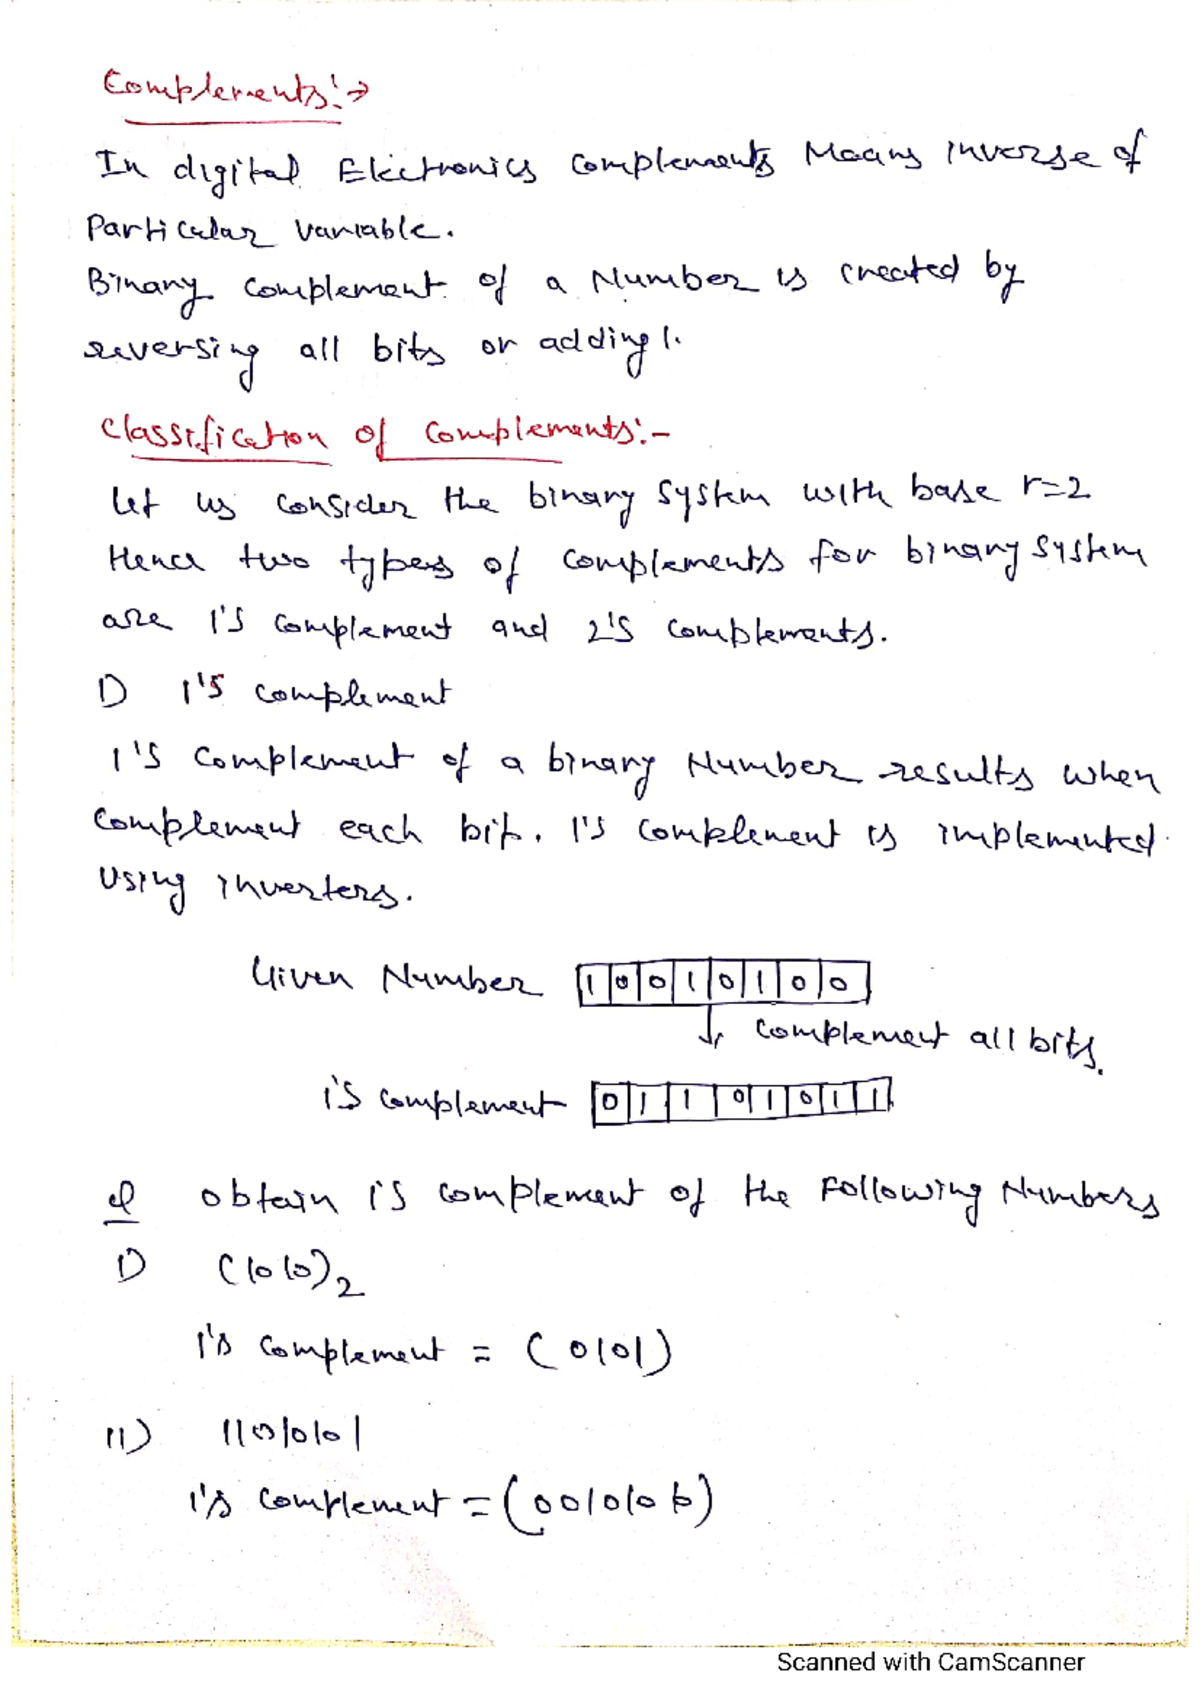 Complements:→
In digital Electronics complements Means inverse of
Particular variable.
Binary complement of a Number is created by
reversing all bits or adding 1.
Classification of Complements:-
Let us consider the binary system with base r=2
Hence two types of complements for binary system
are 1's complement and 2's complements.
1) 1's complement
1's complement of a binary Number results when
complement each bit. 1's complement is implemented
using inverters.
Given Number 1 0 0 1 0 1 0 0
↓ complement all bits.
1's complement 0 1 1 0 1 0 1 1
Q obtain 1's complement of the Following Numbers
1) (1010)2
1's complement = (0101)
11) 11010101
1's complement = (00101010)
Scanned with CamScanner